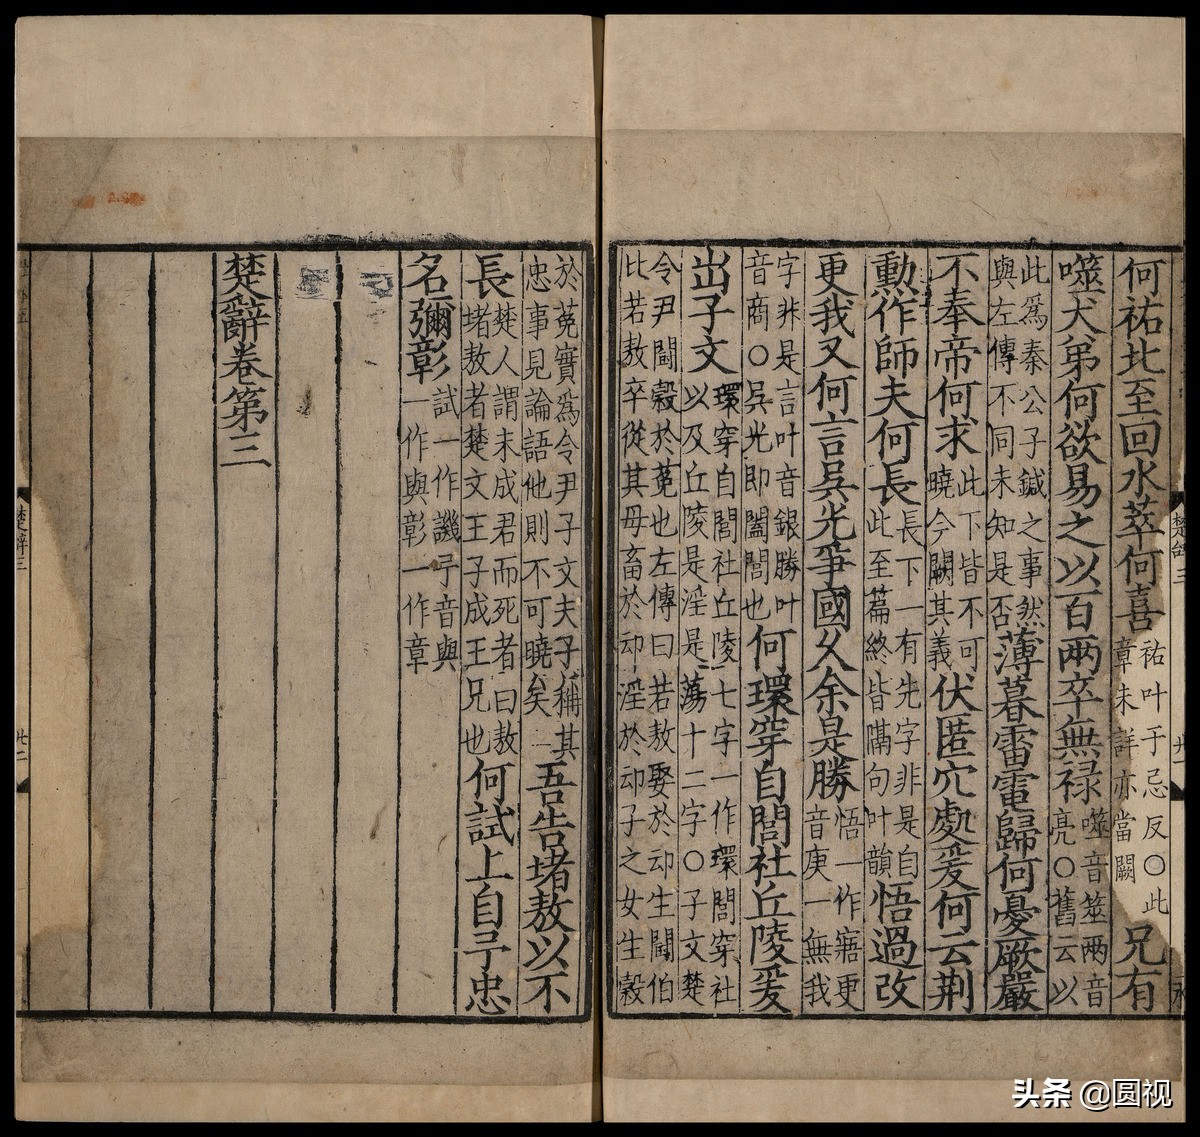 何祐北至回水萃何喜祐叶于忌反○此章未詳亦當闕兄有
噬犬弟何欲易之以百兩卒無禄噬音筮兩音亮○舊云以
此爲秦公子鍼之事然與左傳不同未知是否薄暮雷電歸何憂厥嚴
不奉帝何求此下皆不可曉今闕其義伏匿穴處爰何云荆
勲作師夫何長長下一有先字非是自此至篇終皆隔句叶韻悟過改
更我又何言吳光爭國久余是勝悟一作寤更音庚一無我
字非是言叶音銀勝叶音商○吳光即闔閭也何環穿自閭社丘陵爰
出子文環穿自閭社丘陵七字一作環閭穿社以及丘陵是淫是蕩十二字○子文楚
令尹鬬穀於菟也左傳曰若敖娶於䢵生鬬伯比若敖卒從其母畜於䢵淫於䢵子之女生穀
於菟實爲令尹子文夫子稱其忠事見論語他則不可曉矣吾告堵敖以不
長楚人謂未成君而死者曰敖堵敖者楚文王子成王兄也何試上自予忠
名彌彰試一作譏予音與一作與彰一作章
楚辭卷第三
楚辭三
廿二
头条 @圆视